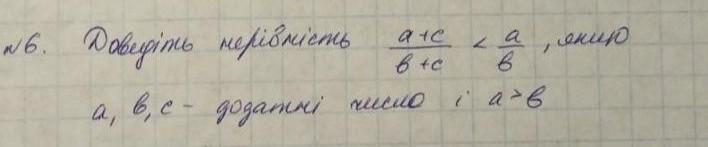 №6. Доведіть нерівність (a+c)/(b+c) < a/b, якщо
a, b, c - додатні число і a>b